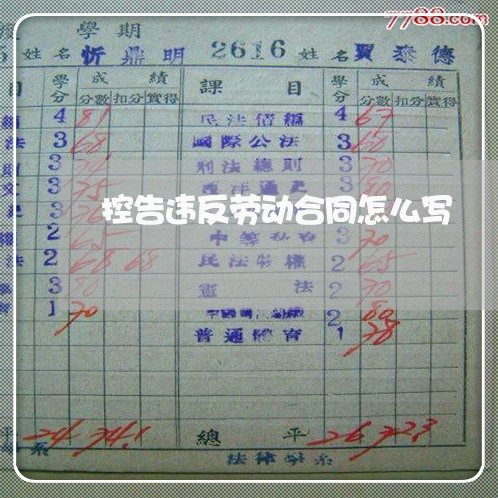 7788.com
學期
姓名 忻鼎明 2616 姓名 賈泰德
目 學分 成績 課目 學分 成績
分數 扣分 實得 分數 扣分 實得
4 81 民法債編 4 67
法 3 68 國際公法 3 60
3 刑法總則 3 70
3 75 西洋通史 3 80
控告违反劳动合同怎么写
2 65 3 70
法 2 68 68 民法物權 2 65
3 80 憲法 2 70
1 70 2 80
普通體育 1 78
平 24 74.1 總平 26 72.3
系 法律學系